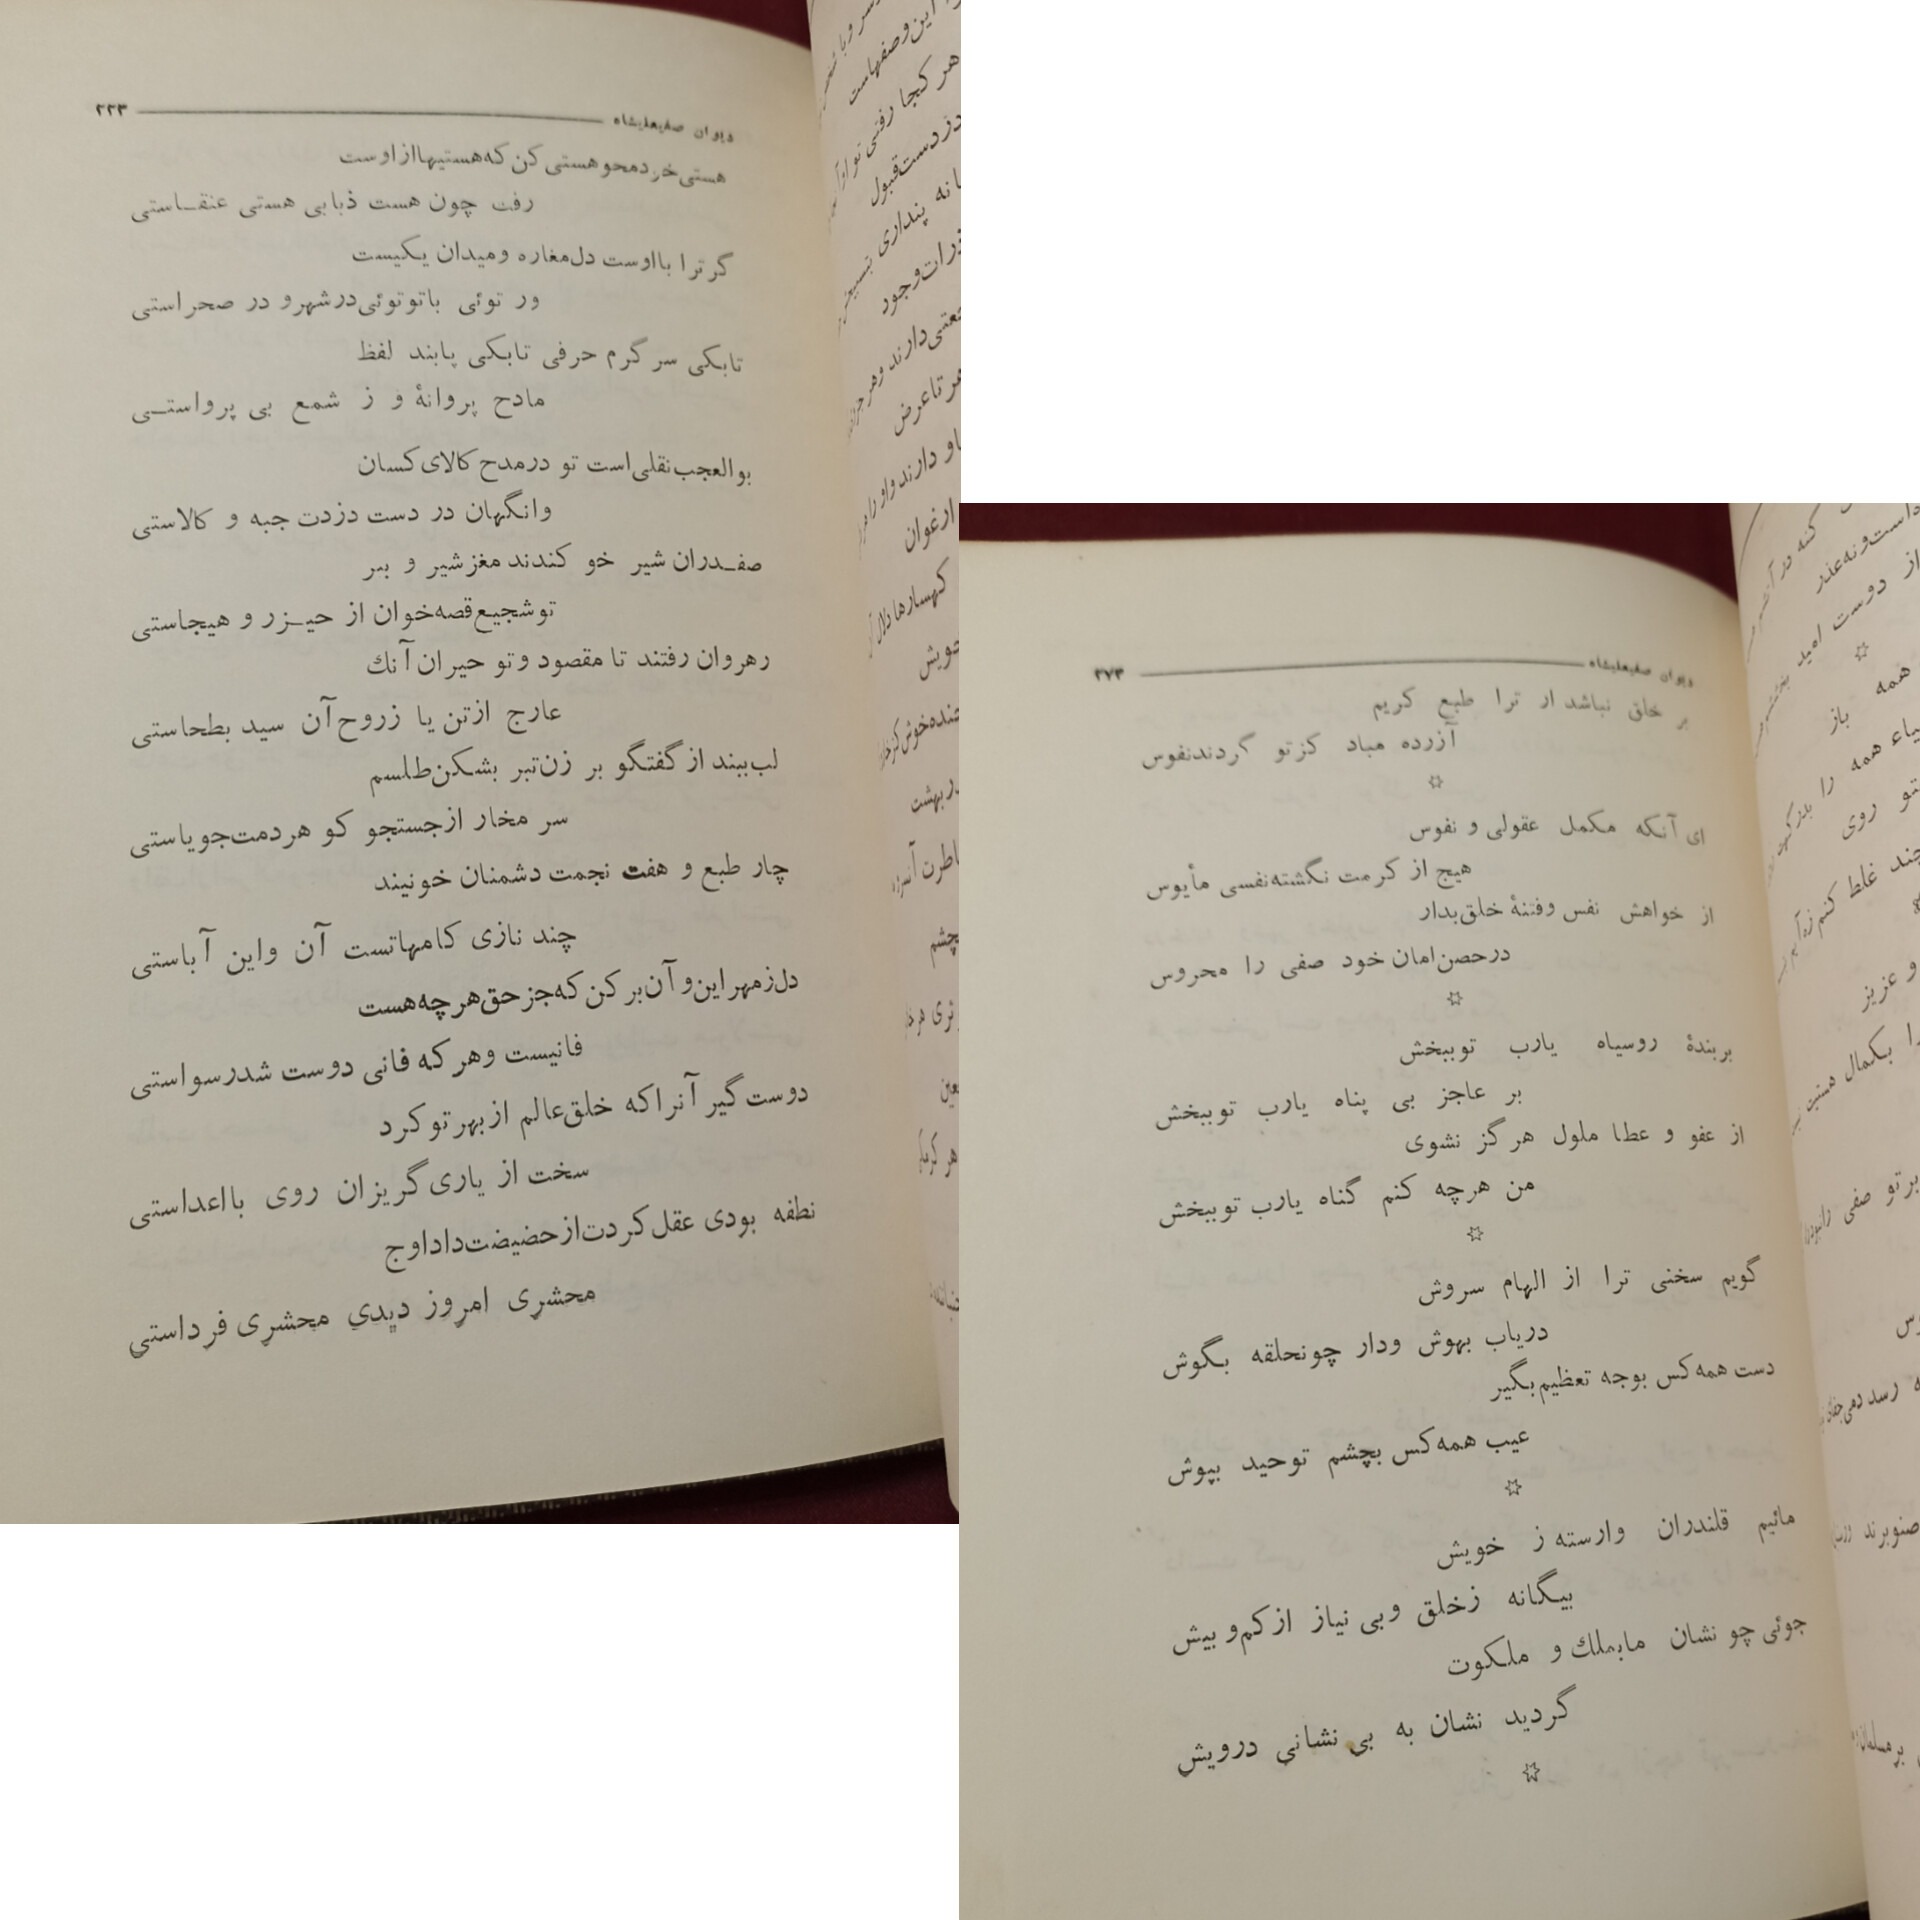 دیوان صفیعلیشاه ۲۲۳
هستی خرد محو هستی کن که هستیها از اوست
رفت چون هست ذبابی هستی عنقـاستی
گر ترا با اوست دل مغاره و میدان یکیست
ور توئی باتو توئی در شهر و در صحراستی
تابکی سر گرم حرفی تابکی پابند لفظ
مادح پروانهٔ و ز شمع بی پرواستـی
بوالعجب نقلی است تو در مدح کالای کسان
وانگهان در دست دزدت جبه و کالاستی
صفـدران شیر خو کندند مغز شیر و ببر
تو شجیع قصه خوان از حیـزر و هیجاستی
رهروان رفتند تا مقصود و تو حیران آنك
عارج از تن یا ز روح آن سید بطحاستی
لب ببند از گفتگو بر زن تبر بشکن طلسم
سر مخار از جستجو کو هر دمت جویاستی
چار طبع و هفت نجمت دشمنان خونیند
چند نازی کامهاتست آن و این آباستی
دل ز مهر این و آن بر کن که جز حق هر چه هست
فانیست و هر که فانی دوست شد رسواستی
دوست گیر آنرا که خلق عالم از بهر تو کرد
سخت از یاری گریزان روی با اعداستی
نطفه بودی عقل کردت از حضیضت داد اوج
محشری امروز دیدی محشری فرداستی
هر کجا رفتی تو
ذرات وجود
ارغوان
دیوان صفیعلیشاه ۲۷۳
بر خلق نباشد ار ترا طبع کریم
آزرده مباد کز تو گردند نفوس
☆
ای آنکه مکمل عقولی و نفوس
هیچ از کرمت نگشته نفسی مأیوس
از خواهش نفس و فتنهٔ خلق بدار
در حصن امان خود صفی را محروس
☆
بر بندهٔ روسیاه یارب تو ببخش
بر عاجز بی پناه یارب تو ببخش
از عفو و عطا ملول هرگز نشوی
من هرچه کنم گناه یارب تو ببخش
☆
گویم سخنی ترا از الهام سروش
دریاب بهوش و دار چونحلقه بگوش
دست همه کس بوجه تعظیم بگیر
عیب همه کس بچشم توحید بپوش
☆
مائیم قلندران وارسته ز خویش
بیگانه ز خلق و بی نیاز از کم و بیش
جوئی چو نشان ما بملك و ملکوت
گردید نشان به بی نشانی درویش
☆
از دوست امید
همه باز
و عزیز